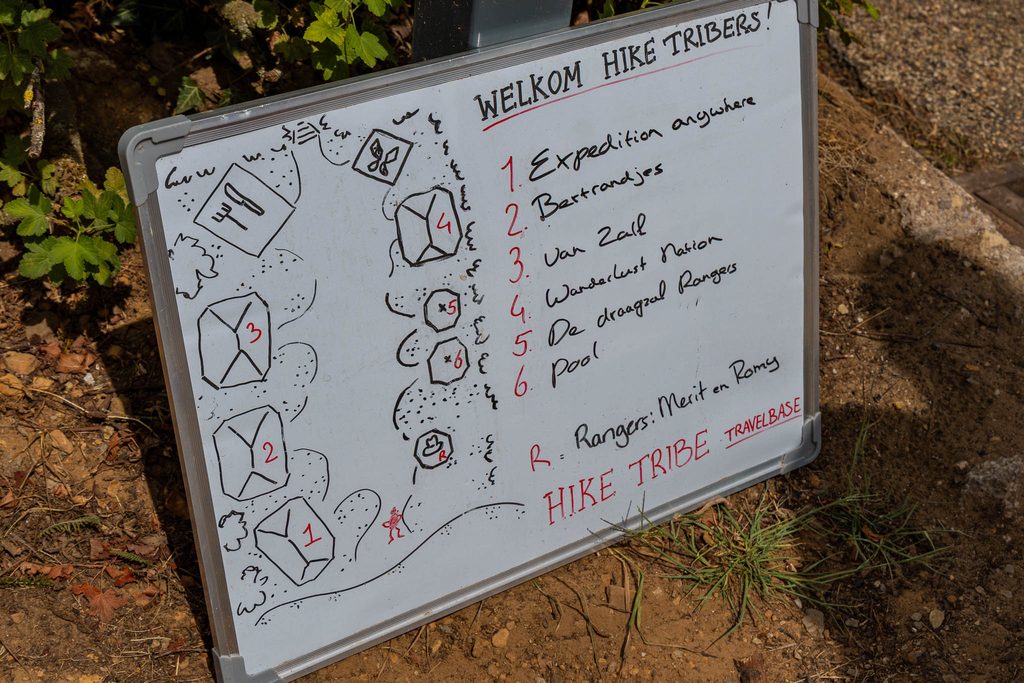 WELKOM HIKE TRIBERS!
1. Expedition anywhere
2. Bertrandjes
3. van Zalf
4. Wanderlust Nation
5. De draagzal Rangers
6. Pool
R = Rangers: Merit en Romy
HIKE TRIBE TRAVELBASE
4
3
5
6
2
R
1